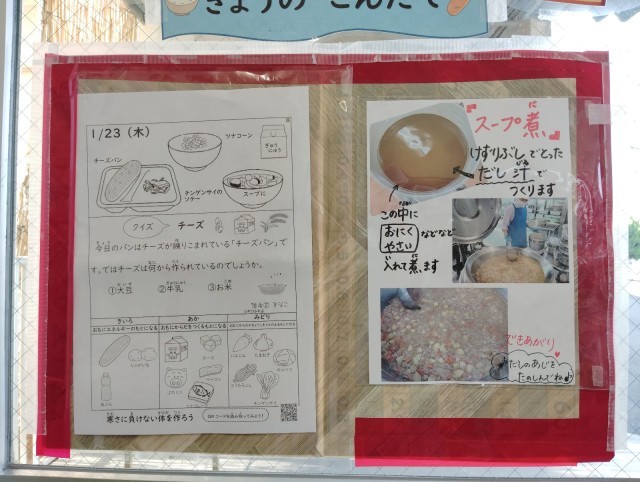 きょうの こんだて
1/23（木）
ツナコーン
ぎゅうにゅう
チーズパン
チンゲンサイの
ソテー
スープに
クイズ チーズ
今日のパンはチーズが練りこまれている「チーズパン」で
す。ではチーズは何から作られているのでしょうか。
①大豆 ②牛乳 ③お米
きいろ あか みどり
おもにエネルギーのもとになる おもにからだをつくるもとになる
じゃがいも
チーズ
にんじん
たまねぎ
チンゲンサイ
寒さに負けない体を作ろう
『スープ煮』
けずりぶしでとった
だし汁で
つくります
この中に
おにく
やさい
などなど
入れて煮ます
できあがり
だしのあじを
たのしんでね♪